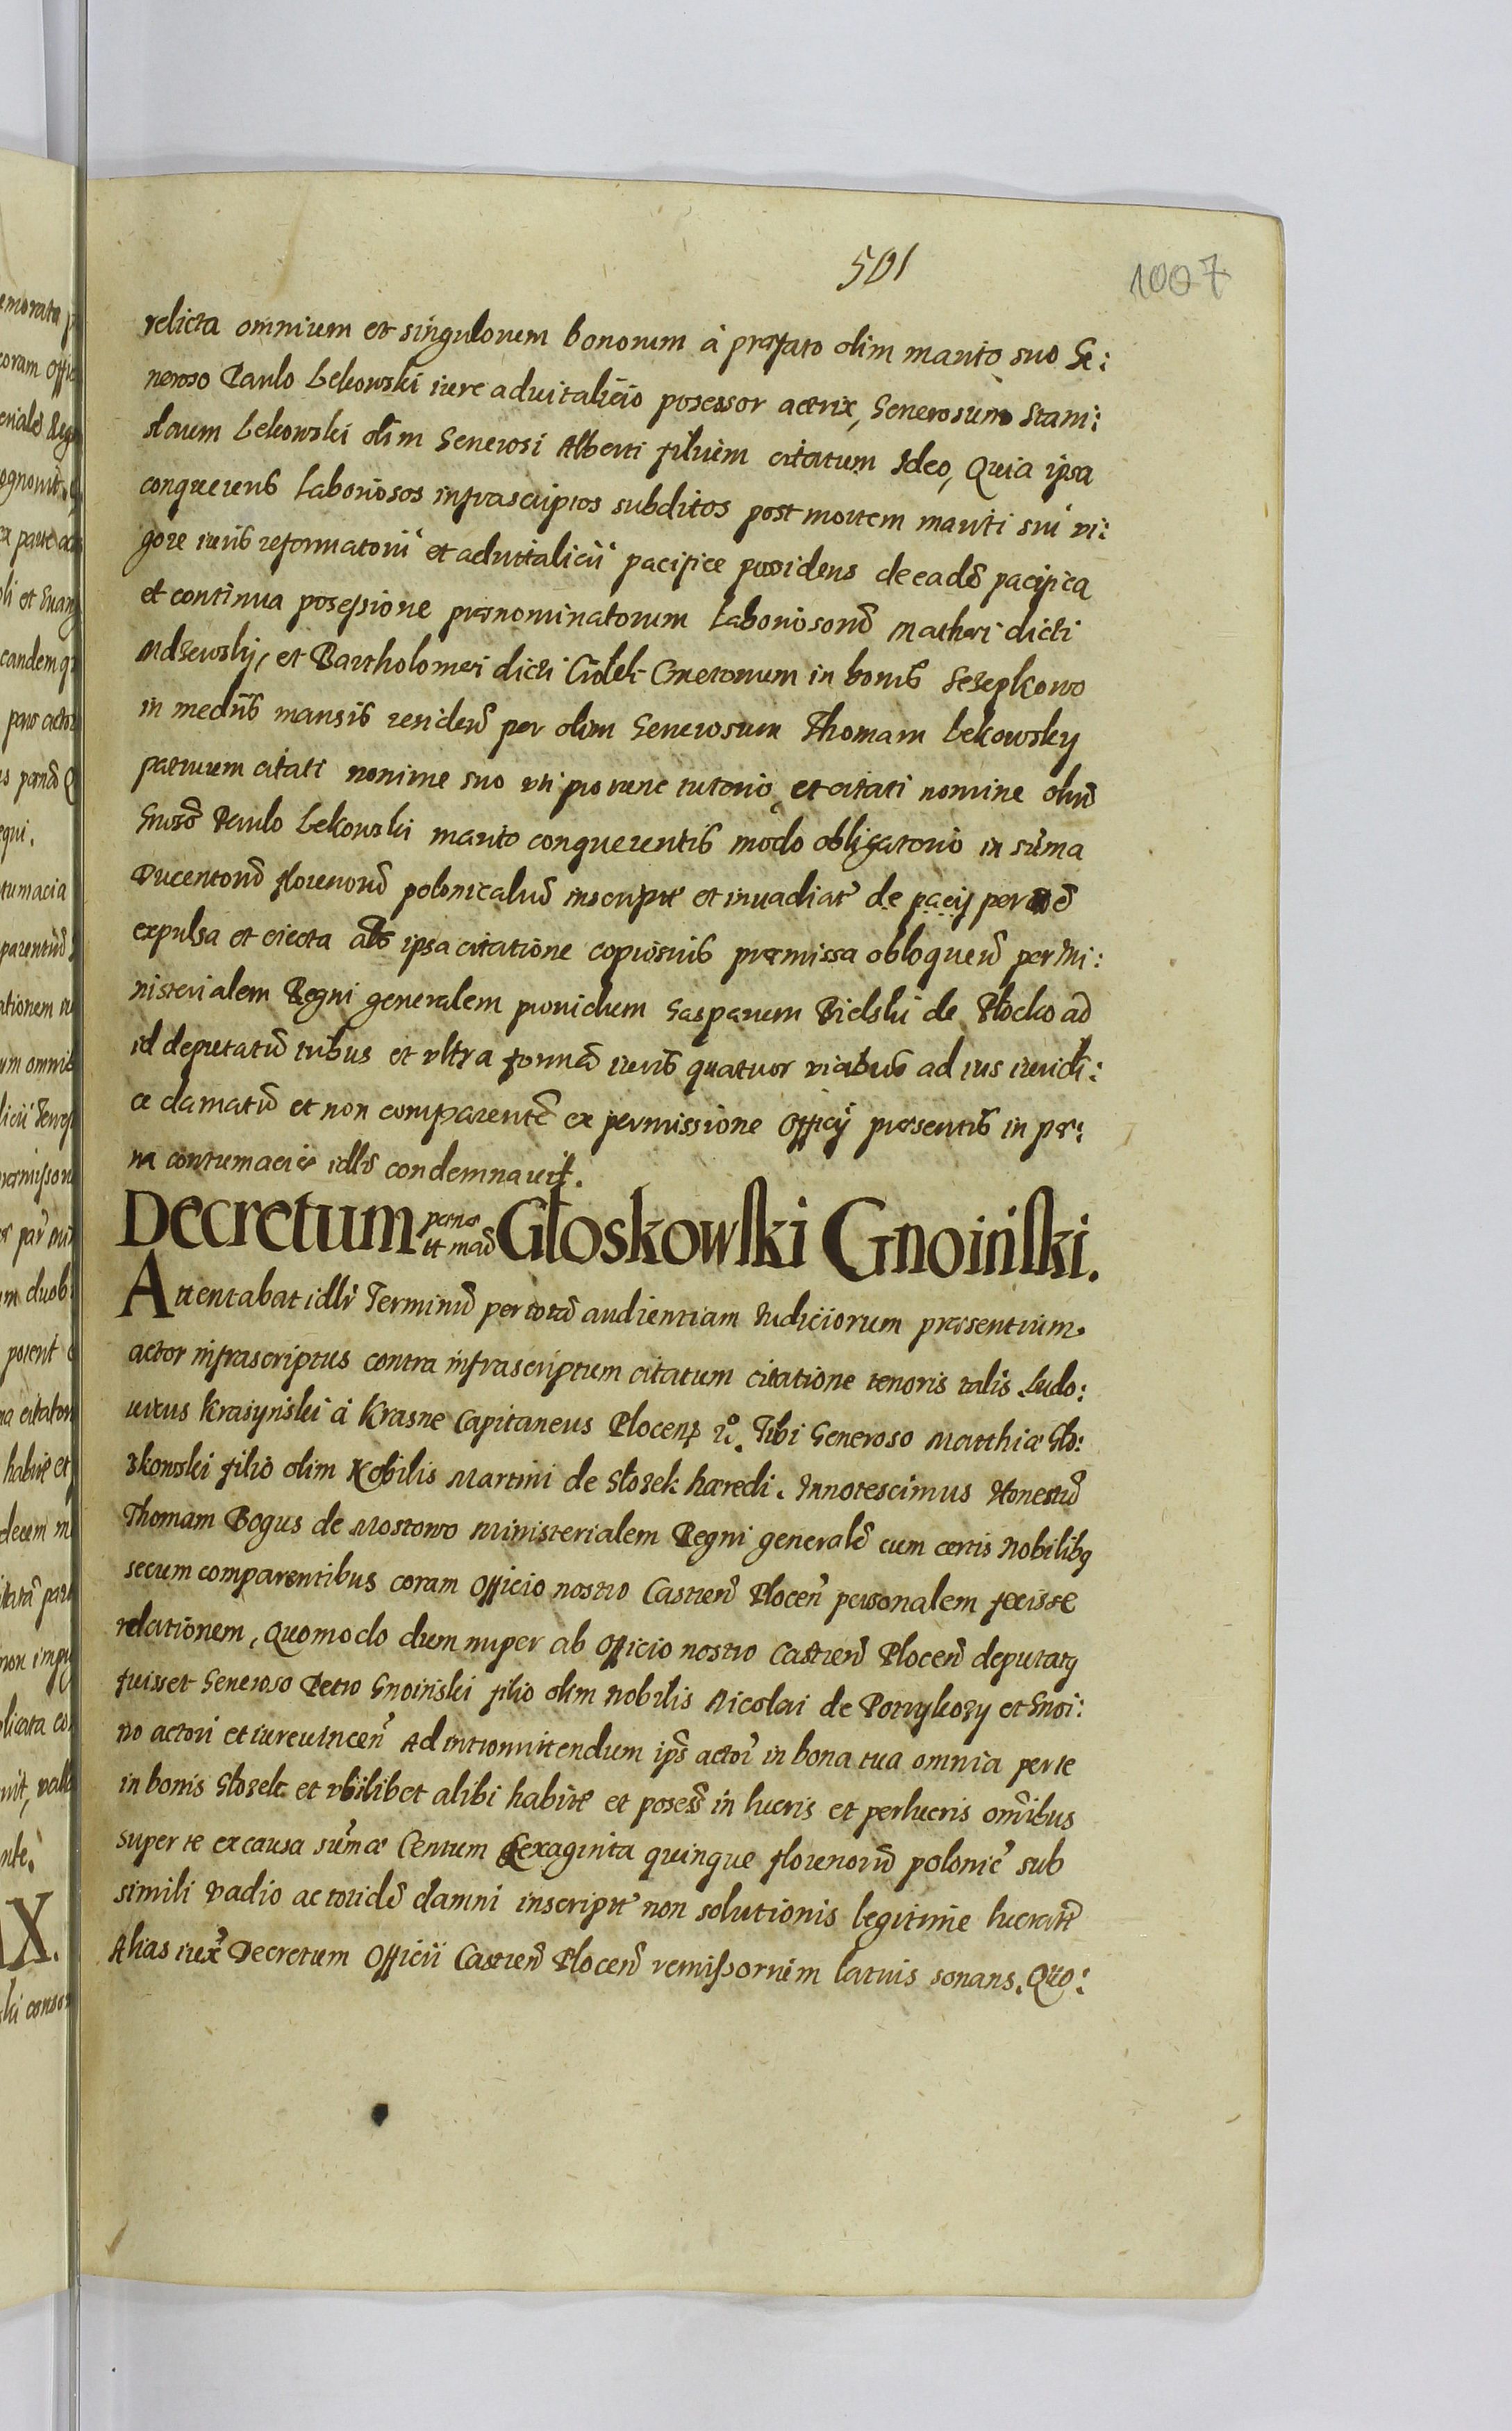 501
1007
relicta omnium et singulorum bonorum à præfato olim marito suo Ge:
neroso Paulo Lekowski iure aduitalicio posessor actrix, Generosum Stani:
slaum Lekowski olim Generosi Alberti filium citatum Ideo, Quia ipsa
conquerens Laboriosos infrascriptos subditos post mortem mariti sui vi:
gore iuris reformatorii et aduitalicii pacifice possidens de eadẽ pacifica
et continua posessione prænominatorum Laboriosorũ Mathæi dicti
et Bartholomei dicti Ciołek Cmetonum in bonis
in medijs mansis residẽn per olim Generosum Thomam Lekowsky
patruum citati nomine suo uti pro tunc tutorio et citati nomine olim
Gnoso Paulo Lekowski marito conquerentis modo obligatorio in sũma
Ducentorũ florenorũ polonicaliũ inscript et inuadiat de pacij per
expulsa et eiecta alt ipsa citatione copiosius præmissa obloquen per Mi:
nisterialem Regni generalem prouidum Gasparum Bielski de Płocko ad
id deputatũ tribus et vltra formã iuris quatuor vicibus ad ius iuridi:
ce clamatũ et non comparentẽ ex permissione Officij præsentis in pæ:
na contumaciæ idłr condemnauit.
Decretum pænæ et Głoskowski Gnoiński.
Attentabat idłr Terminũ per totã audientiam Iudiciorum præsentium
actor infrascriptus contra infrascriptum citatum citatione tenoris talis Ludo:
uicus Krasyński à Krasne Capitaneus Plocen Tibi Generoso Matthiæ Glo:
skowski filio olim Nobilis Martini de Głozek hæredi. Innotescimus Honestũ
Thomam Bogus de Mostowo Ministerialem Regni generalẽ cum certis Nobilibq
secum comparentibus coram Officio nostro Castren Plocen personalem fecisse
relationem, Quomodo dum nuper ab Officio nostro Castren Plocen deputatq
fuisset Generoso Petro Gnoiński filio olim Nobilis Nicolai de Potrykozy et Gnoi:
no actori et iureuincen Ad intromittendum ips actor in bona tua omnia per te
in bonis Głozek et vbilibet alibi habite et posess in lucris et perlucris omibus
super te ex causa sũmæ Centum Sexaginta quinque florenorũ polonic sub
simili vadio ac toridẽ damni inscript non solutionis legitime lucrate
Alias iux Decretum Officii Castren Plocen remissorium latius sonans. Quo: